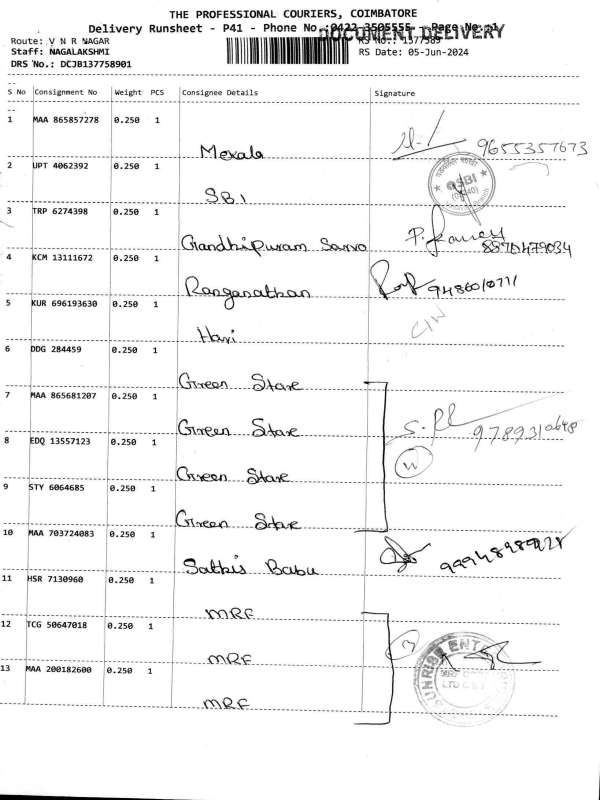 THE PROFESSIONAL COURIERS, COIMBATORE
Delivery Runsheet - P41 - Phone No.:0422-3505555 - Page No.:1
DOCUMENT DELIVERY
Route: V N R NAGAR RS No.: 1377589
Staff: NAGALAKSHMI RS Date: 05-Jun-2024
DRS No.: DCJB137758901
S No Consignment No Weight PCS Consignee Details Signature
1 MAA 865857278 0.250 1
Mexala 9655357673
2 UPT 4062392 0.250 1
SBI SBI
3 TRP 6274398 0.250 1
Gandhipuram P. 8870479034
4 KCM 13111672 0.250 1
Ranganathan
5 KUR 696193630 0.250 1
Hari
6 DDG 284459 0.250 1
Green Stare
7 MAA 865681207 0.250 1
Green Stare
8 EDQ 13557123 0.250 1
Green Stare
9 STY 6064685 0.250 1
Green Stare
10 MAA 703724083 0.250 1
Sathis Babu
11 HSR 7130960 0.250 1
MRF
12 TCG 50647018 0.250 1
MRF
13 MAA 200182600 0.250 1
MRF
SUNRISE ENT